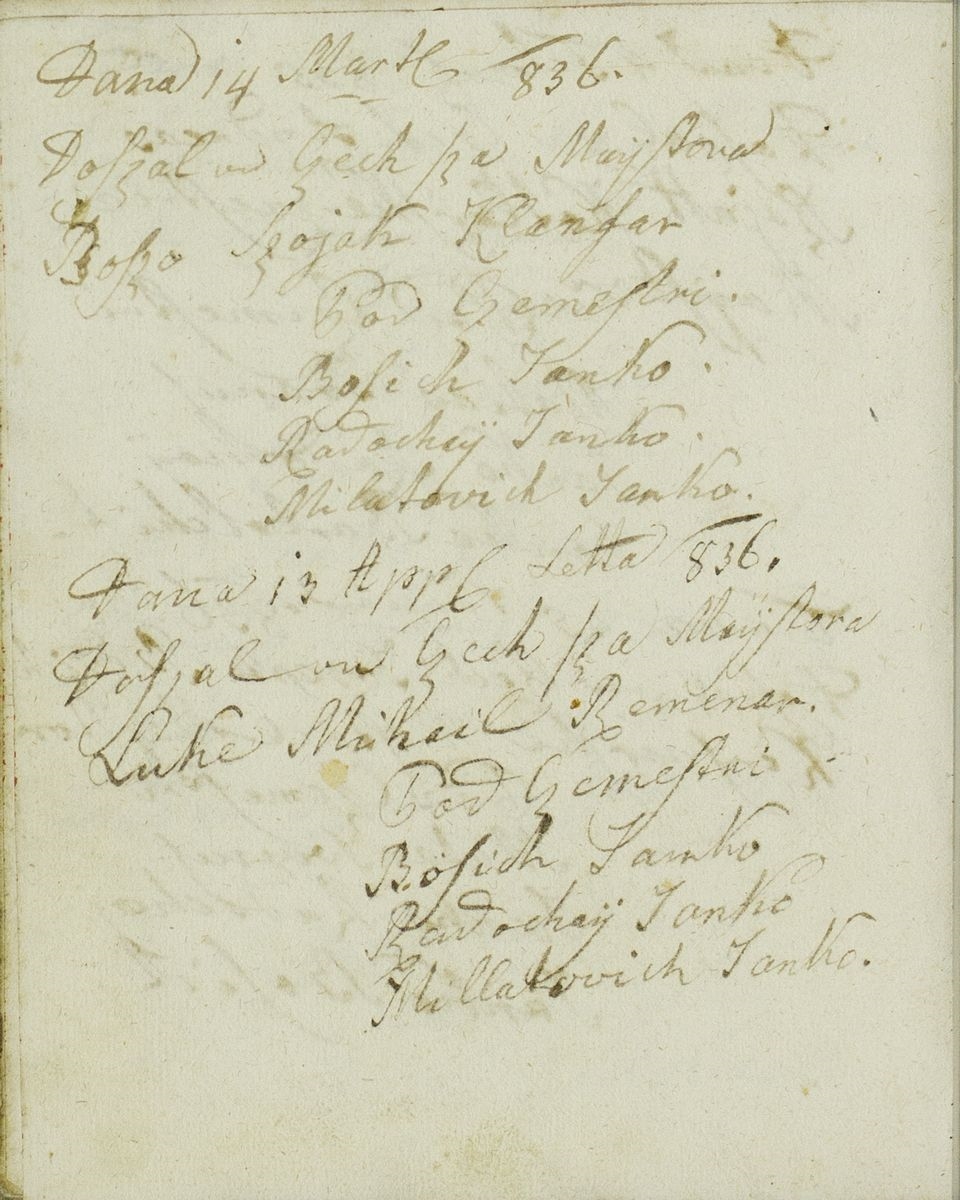 Dana 14 Martz 836.
Doſzal vu Czech ſza Mayſtora
Boſzo Szojak Klanfar
Pod Czemeſtri.
Boſich Janko.
Radochaÿ Janko.
Milatovich Janko.
Dana 13 App Letta 836.
Doſzal vu Czech ſza Maÿſtora
Luke Mihail Remenar.
Pod Czemeſtri
Boſich Janko
Radochaÿ Janko
Millatovich Janko.